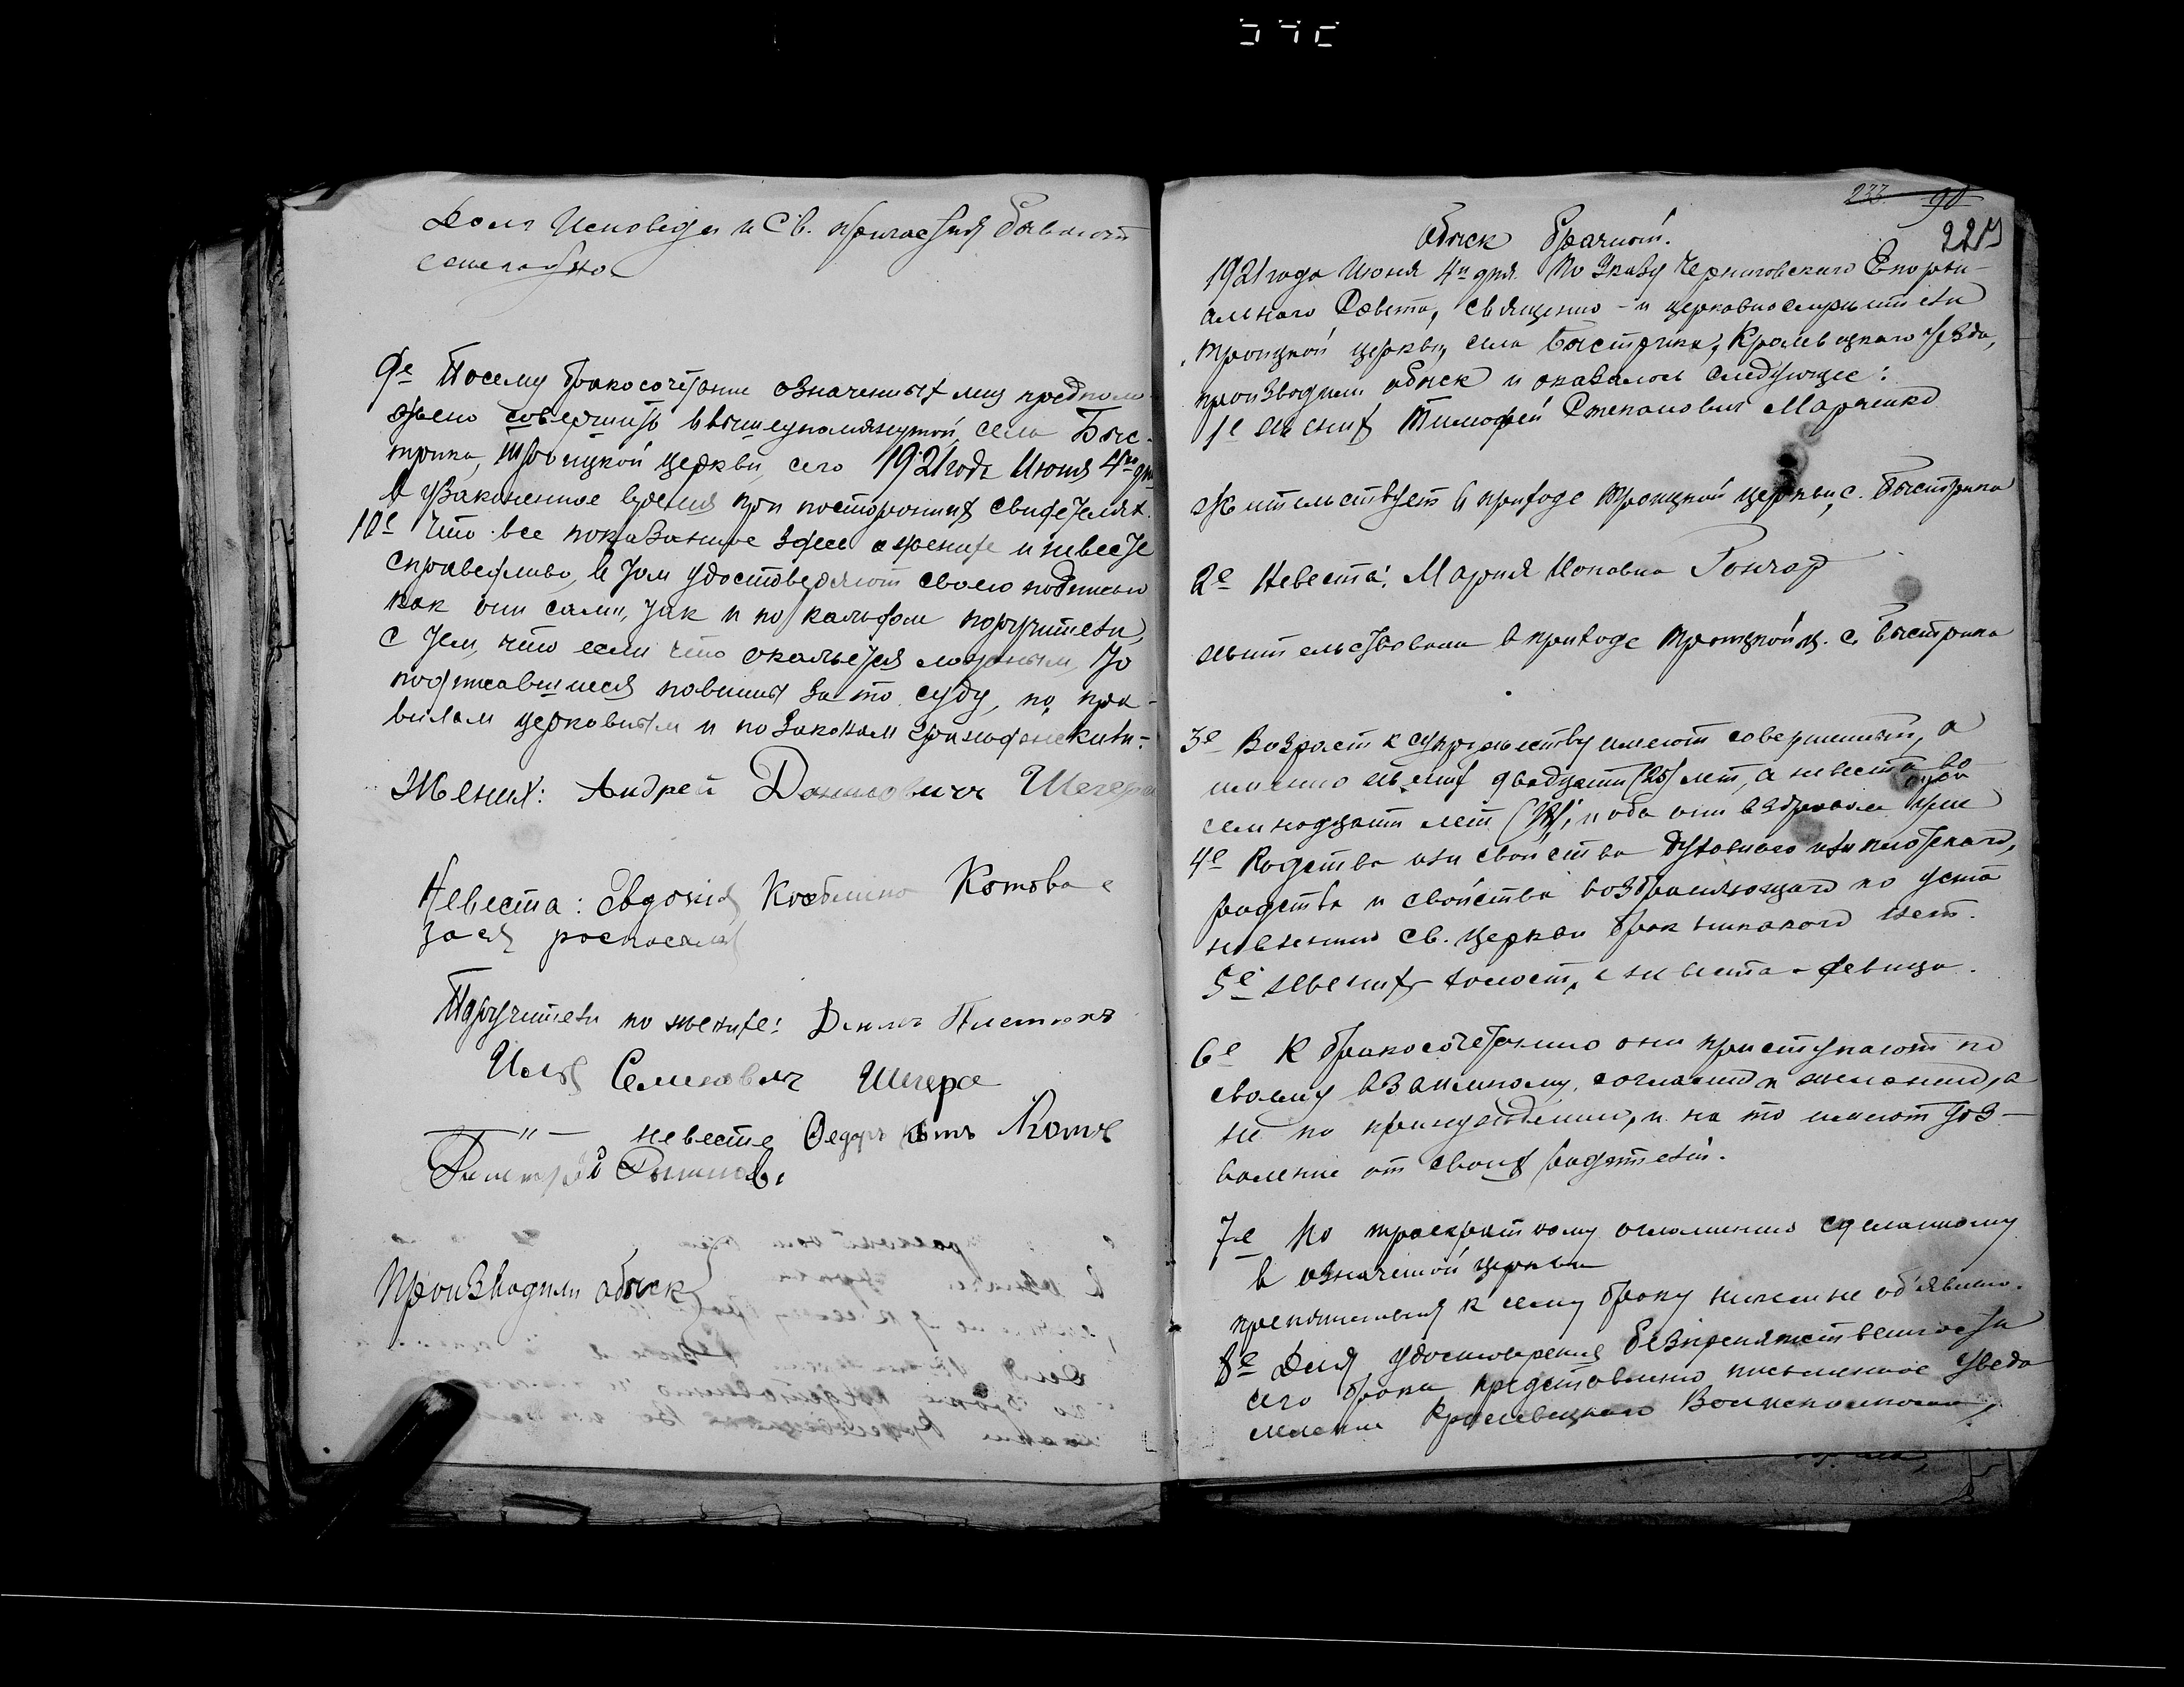 долг Исповеди и Св. причастия бывают
ежегодно
9е Посему бракосочетание означенных лиц предполо-
жено совершить в вышеупомянутой, села Быс-
трика, Троицкой церкви, сего 1921 года Июня 4го дня
в узаконенное время при посторонних свидетелях.
10е Что все показанное здесь о женихе и невесте
справедливо, в том удостоверяют своею подписью
как они сами, так и по каждом поручители,
с тем, что если что окажется ложным, то
подписавшиеся повинны за то суду, по пра-
вилам церковным и по законам гражданским:
Жених: Андрей Данилович Шегера
Невеста: Евдокия Котова
за ея росписался
Поручители по женихе: Данил
Илья Семенович Шегера
—"— невесте Федор Котов
Димитрий
Производили обыск
233 90
227
Обыск брачный.
1921 года Июня 4го дня. По Указу Черниговского Епархи-
ального Совета, священно- и церковнослужители
Троицкой церкви, села Быстрика, Кролевецкаго уезда,
производили обыск и оказалось следующее:
1е Жених Тимофей Степанович Марченко
жительствует в приходе Троицкой церкви, с. Быстрика
2е Невеста: Мария Ионовна Гончар
жительствовала в приходе Троицкой ц. с. Быстрика
3е Возраст к супружеству имеют совершенный, а
именно жених двадцати (20) лет, а невеста во
семнадцати лет (18), и оба они в здравом уме
4е Родства или свойства духовного или плотскаго,
родства и свойства возбраняющаго по уста
новлению Св. Церкви брак никакого нет.
5е Жених холост, а невеста - девица.
6е К бракосочетанию они приступают по
своему взаимному согласию и желанию, а
не по принуждению, и на то имеют доз-
воление от своих родителей.
7е По троекратному оглашению сделанному
в означенной церкви
препятствия к сему браку никем не об'явлено.
8е Для удостоверения безпрепятственности
сего брака представлено письменное уведо
мление Кролевецкаго Волисполкома,